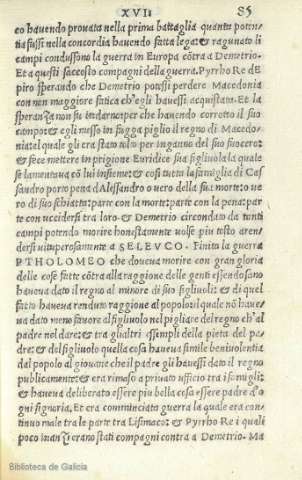 XVII
85
co havendo provata nella prima battaglia quanta poten-
tia fussi nella concordia havendo fatta lega: & ragunato li
campi condussono la guerra in Europa cōtra a Demetrio.
Et a questi saccosto compagni della guerra. Pyrrho Re dE
piro sperando che Demetrio potessi perdere Macedonia
con non maggiore fatica ch'egli havessi acquistata. Et la
speranza non fu indarno: per che havendo corretto il suo
campo: & egli messo in fugga piglio il regno di Macedo-
nia: el quale gli era stato tolto per inganno del suo suocero:
& fece mettere in prigione Euridice sua figliuola la quale
se lamentava cō lui insieme: & cosi tutta la famiglia di Cas
sandro porto pena d'Alessandro o vero della sua morte: o ve
ro di sua schiatta: parte con la morte: parte con la pena: par
te con uccidersi tra loro. & Demetrio circondato da tanti
campi potendo morire honestamente volse piu tosto aren-
dersi vituperosamente a SELEVCO. Finita la guerra
PTHOLOMEO che doveva morire con gran gloria
delle cose fatte cōtra alla raggione delle genti essendosano
haveva dato il regno al minore di suo figliuoli: & di quel
fatto haveva renduto raggione al popolo: il quale nō have-
va dato meno favore al figliuolo nel pigliare del regno ch'al
padre nel dare: & tra gli altri essempli della pieta del pa-
dre: & del figliuolo quella cosa haveva simile benivolentia
dal popolo al giovane che il padre gli havessi dato il regno
publicamente: & era rimaso a privato ufficio tra i famigli:
& haveva deliberato essere piu bella cosa essere padre d'o
gni signoria. Et era cominciato guerra la quale era con-
tinuo male tra le parte tra Lisimaco: & Pyrrho Re i quali
poco inanzi erano stati compagni contra a Demetrio. Ma
Biblioteca de Galicia